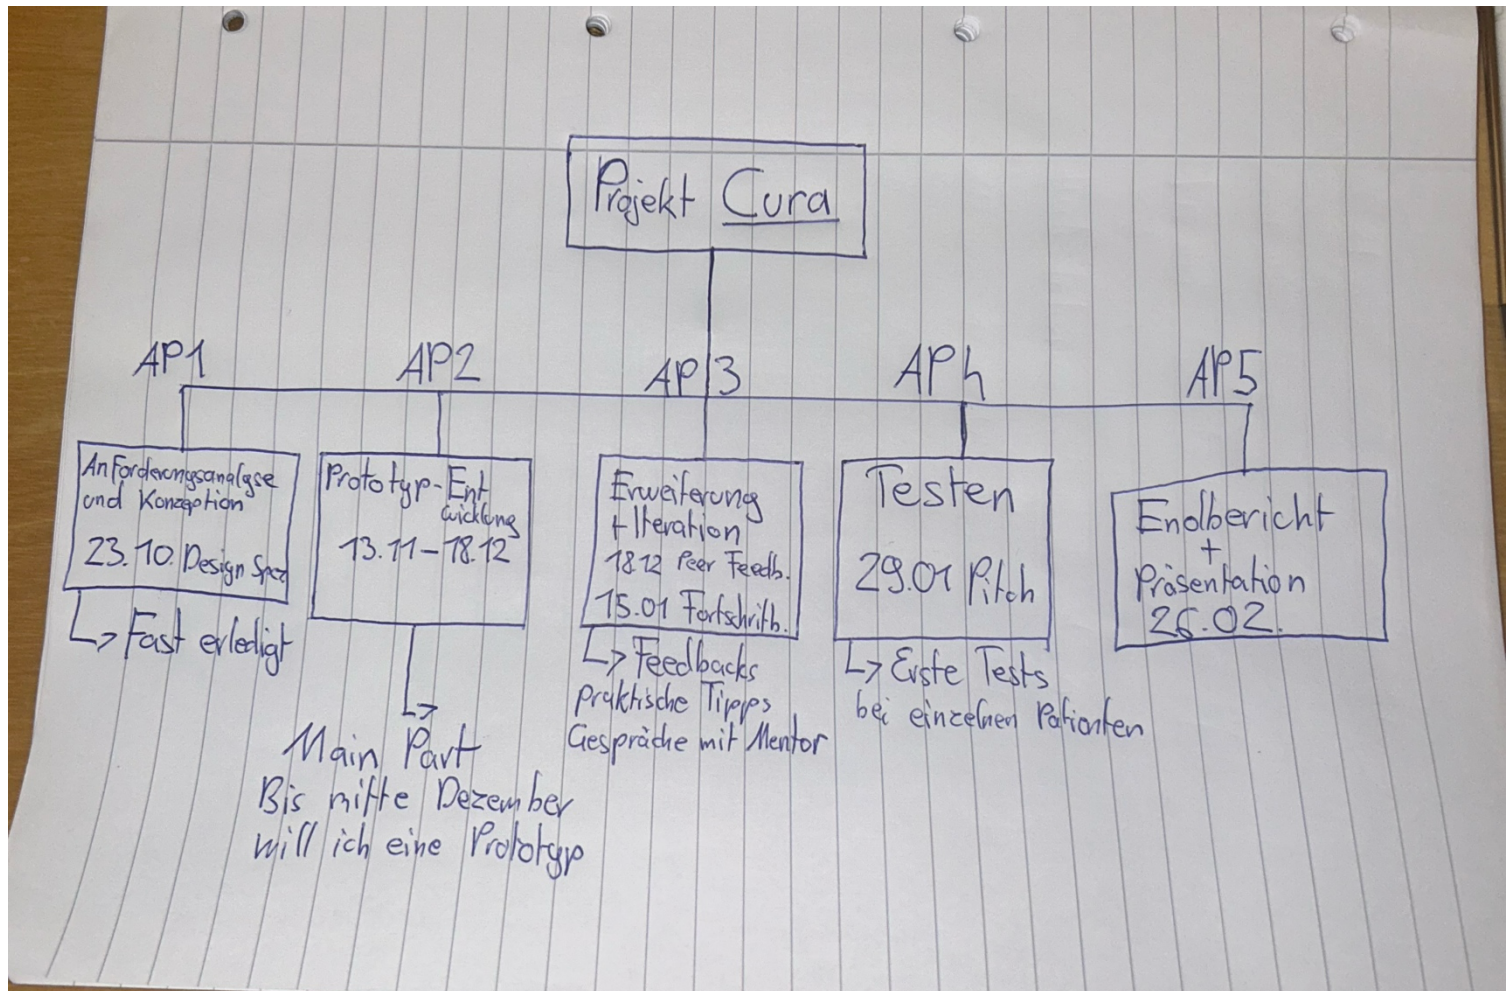 Projekt Cura
AP1
AP2
AP3
AP4
AP5
Anforderungsanalyse
und Konzeption
23.10. Design Spez
Fast erledigt
Prototyp-Ent
wicklung
13.11-18.12
Main Part
Bis mitte Dezember
will ich eine Prototyp
Erweiterung
+ Iteration
18.12 Peer Feedb.
15.01 Fortschritb.
Feedbacks
praktische Tipps
Gespräche mit Mentor
Testen
29.01 Pitch
Erste Tests
bei einzelnen Patienten
Endbericht
+
Präsentation
26.02.